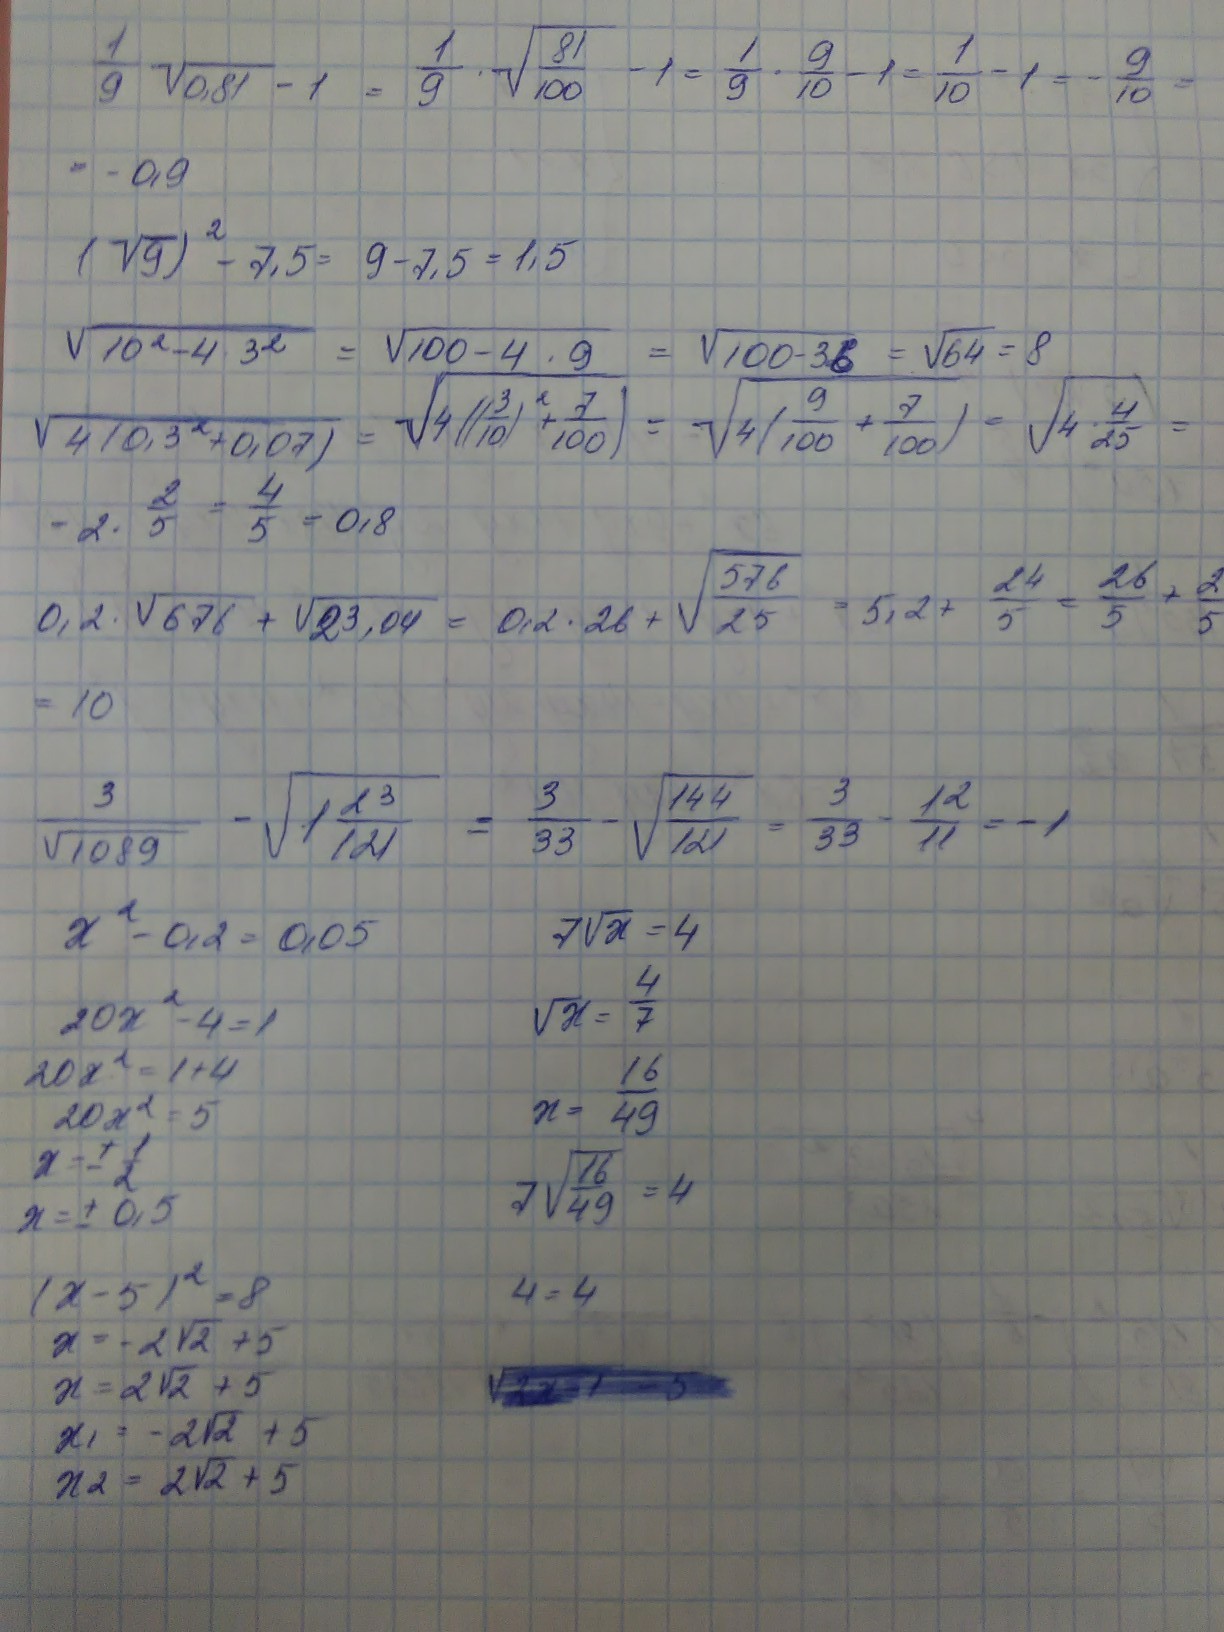 1/9 √0,81 - 1 = 1/9 · √(81/100) - 1 = 1/9 · 9/10 - 1 = 1/10 - 1 = - 9/10 =
= - 0,9
(√9)² - 7,5 = 9 - 7,5 = 1,5
√(10² - 4 · 3²) = √(100 - 4 · 9) = √(100 - 36) = √64 = 8
√(4(0,3² + 0,07)) = √(4((3/10)² + 7/100)) = √(4(9/100 + 7/100)) = √(4 · 4/25) =
= 2 · 2/5 = 4/5 = 0,8
0,2 · √676 + √23,04 = 0,2 · 26 + √(576/25) = 5,2 + 24/5 = 26/5 + 2/5
= 10
3/√1089 - √(1 23/121) = 3/33 - √(144/121) = 3/33 - 12/11 = -1
x² - 0,2 = 0,05
20x² - 4 = 1
20x² = 1 + 4
20x² = 5
x = ± 1/2
x = ± 0,5
(x - 5)² = 8
x = - 2√2 + 5
x = 2√2 + 5
x1 = - 2√2 + 5
x2 = 2√2 + 5
7√x = 4
√x = 4/7
x = 16/49
7√(16/49) = 4
4 = 4